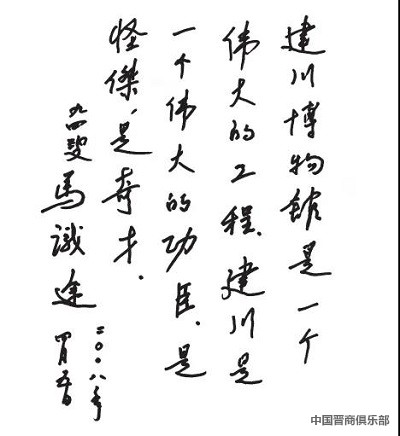 建川博物館是一个
伟大的工程，建川是
一个伟大的功臣，是
怪傑，是奇才．
九四叟馬識途
二〇〇八年
四月五日
中国晋商俱乐部